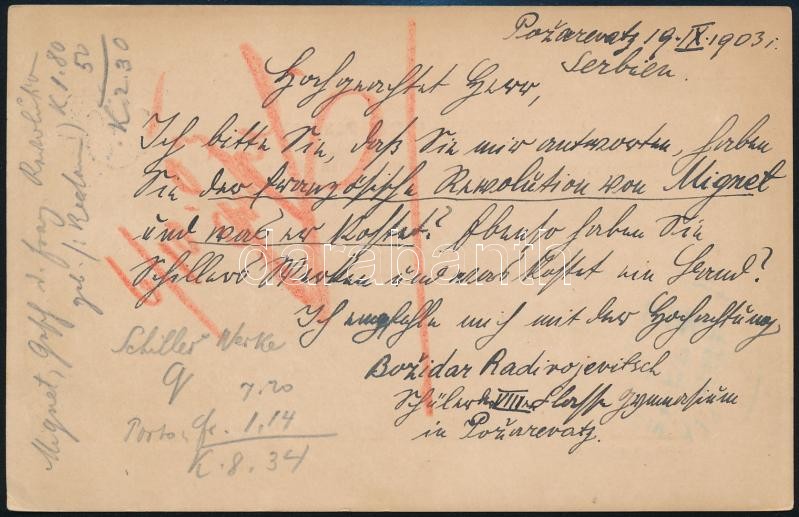 Požarevatz 19.IX.1903 i.
Serbien.
Hochgeachtet Herr,
Ich bitte Sie, daß Sie mir antworten, haben
Sie der französische Rewolution von Mignet
und was er kostet? Ebenso haben Sie
Schillers Werken und was kostet ein Band?
Ich empfehle mich mit der Hochachtung
Božidar Radivojevitsch
Schüler d. VIII. Classe Gymnasium
in Požarevatz.
Schiller Werke
9 7.20
Porto 1.14
K. 8.34
Mignet, Gesch d. franz Revolution
geb. (: Reclam) K 1.80
50
K 2.30
darabanth